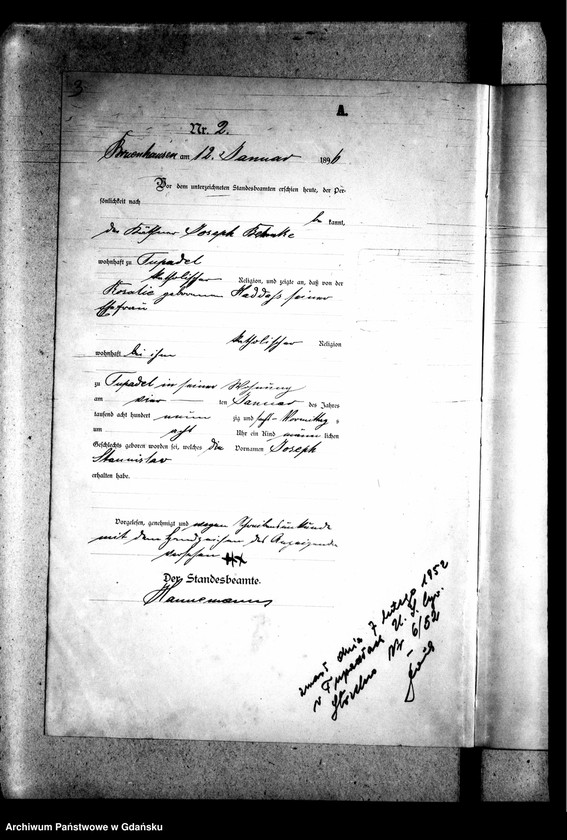 3
A.
Nr. 2.
am 12. Januar 1896
Vor dem unterzeichneten Standesbeamten erschien heute, der Per-
sönlichkeit nach
be kannt,
der Joseph
wohnhaft zu Tupadel
katholischer Religion, und zeigte an, daß von der
Rosalie geborenen Haddass seiner
Ehefrau
katholischer Religion
wohnhaft bei ihm
zu Tupadel in seiner Wohnung
am vier ten Januar des Jahres
tausend acht hundert neun zig und sechs Vormittags
um acht Uhr ein Kind männ lichen
Geschlechts geboren worden sei, welches die Vornamen Joseph
Stanislav
erhalten habe.
Vorgelesen, genehmigt und wegen Schreibensunkunde
mit dem Handzeichen des Anzeigenden
versehen +++
Der Standesbeamte.
Hannemann
zmarł dnia 7 lutego 1952
w Tupadłach U. S. C.
Nr 6/52
Archiwum Państwowe w Gdańsku